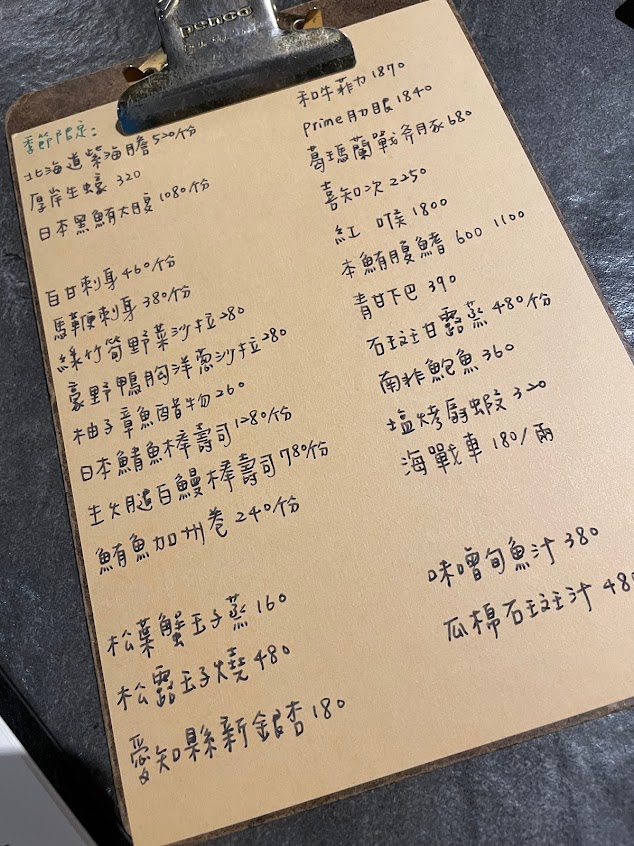 penco
季節限定:
北海道紫海膽 520/份
厚岸生蠔 320
日本黑鮪大腹 1080/份
白甘刺身 460/份
馬鞭刺身 380/份
綠竹筍野菜沙拉 280
豪野鴨胸洋蔥沙拉 280
柚子章魚醋物 260
日本鯖魚棒壽司 1280/份
生火腿白鰻棒壽司 780/份
鮪魚加州卷 240/份
松葉蟹玉子蒸 160
松露玉子燒 480
愛知縣新銀杏 180
和牛菲力 1870
Prime肋眼 1840
葛瑪蘭戰斧豚 680
喜知次 2250
紅喉 1800
本鮪腹鰭 600 1100
青甘下巴 390
石斑甘露蒸 480/份
南非鮑魚 360
塩烤扇蝦 320
海戰車 180/兩
味噌旬魚汁 380
瓜棉石斑汁 480